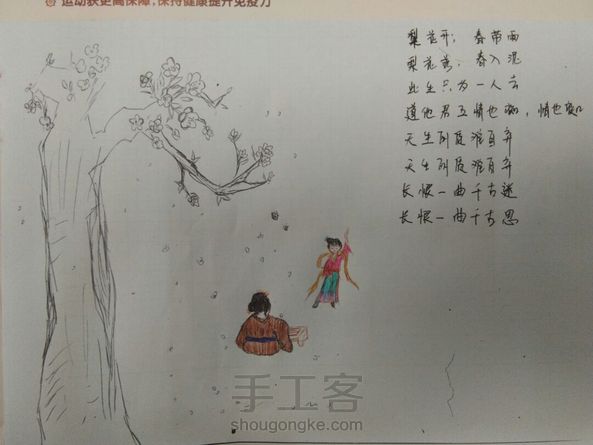 运动获更高保障，保持健康提升免疫力
梨花开，春带雨
梨花落，春入泥
此生只为一人去
道他君王情也痴，情也痴
天生丽质难自弃
天生丽质难自弃
长恨一曲千古迷
长恨一曲千古思
手工客
shougongke.com